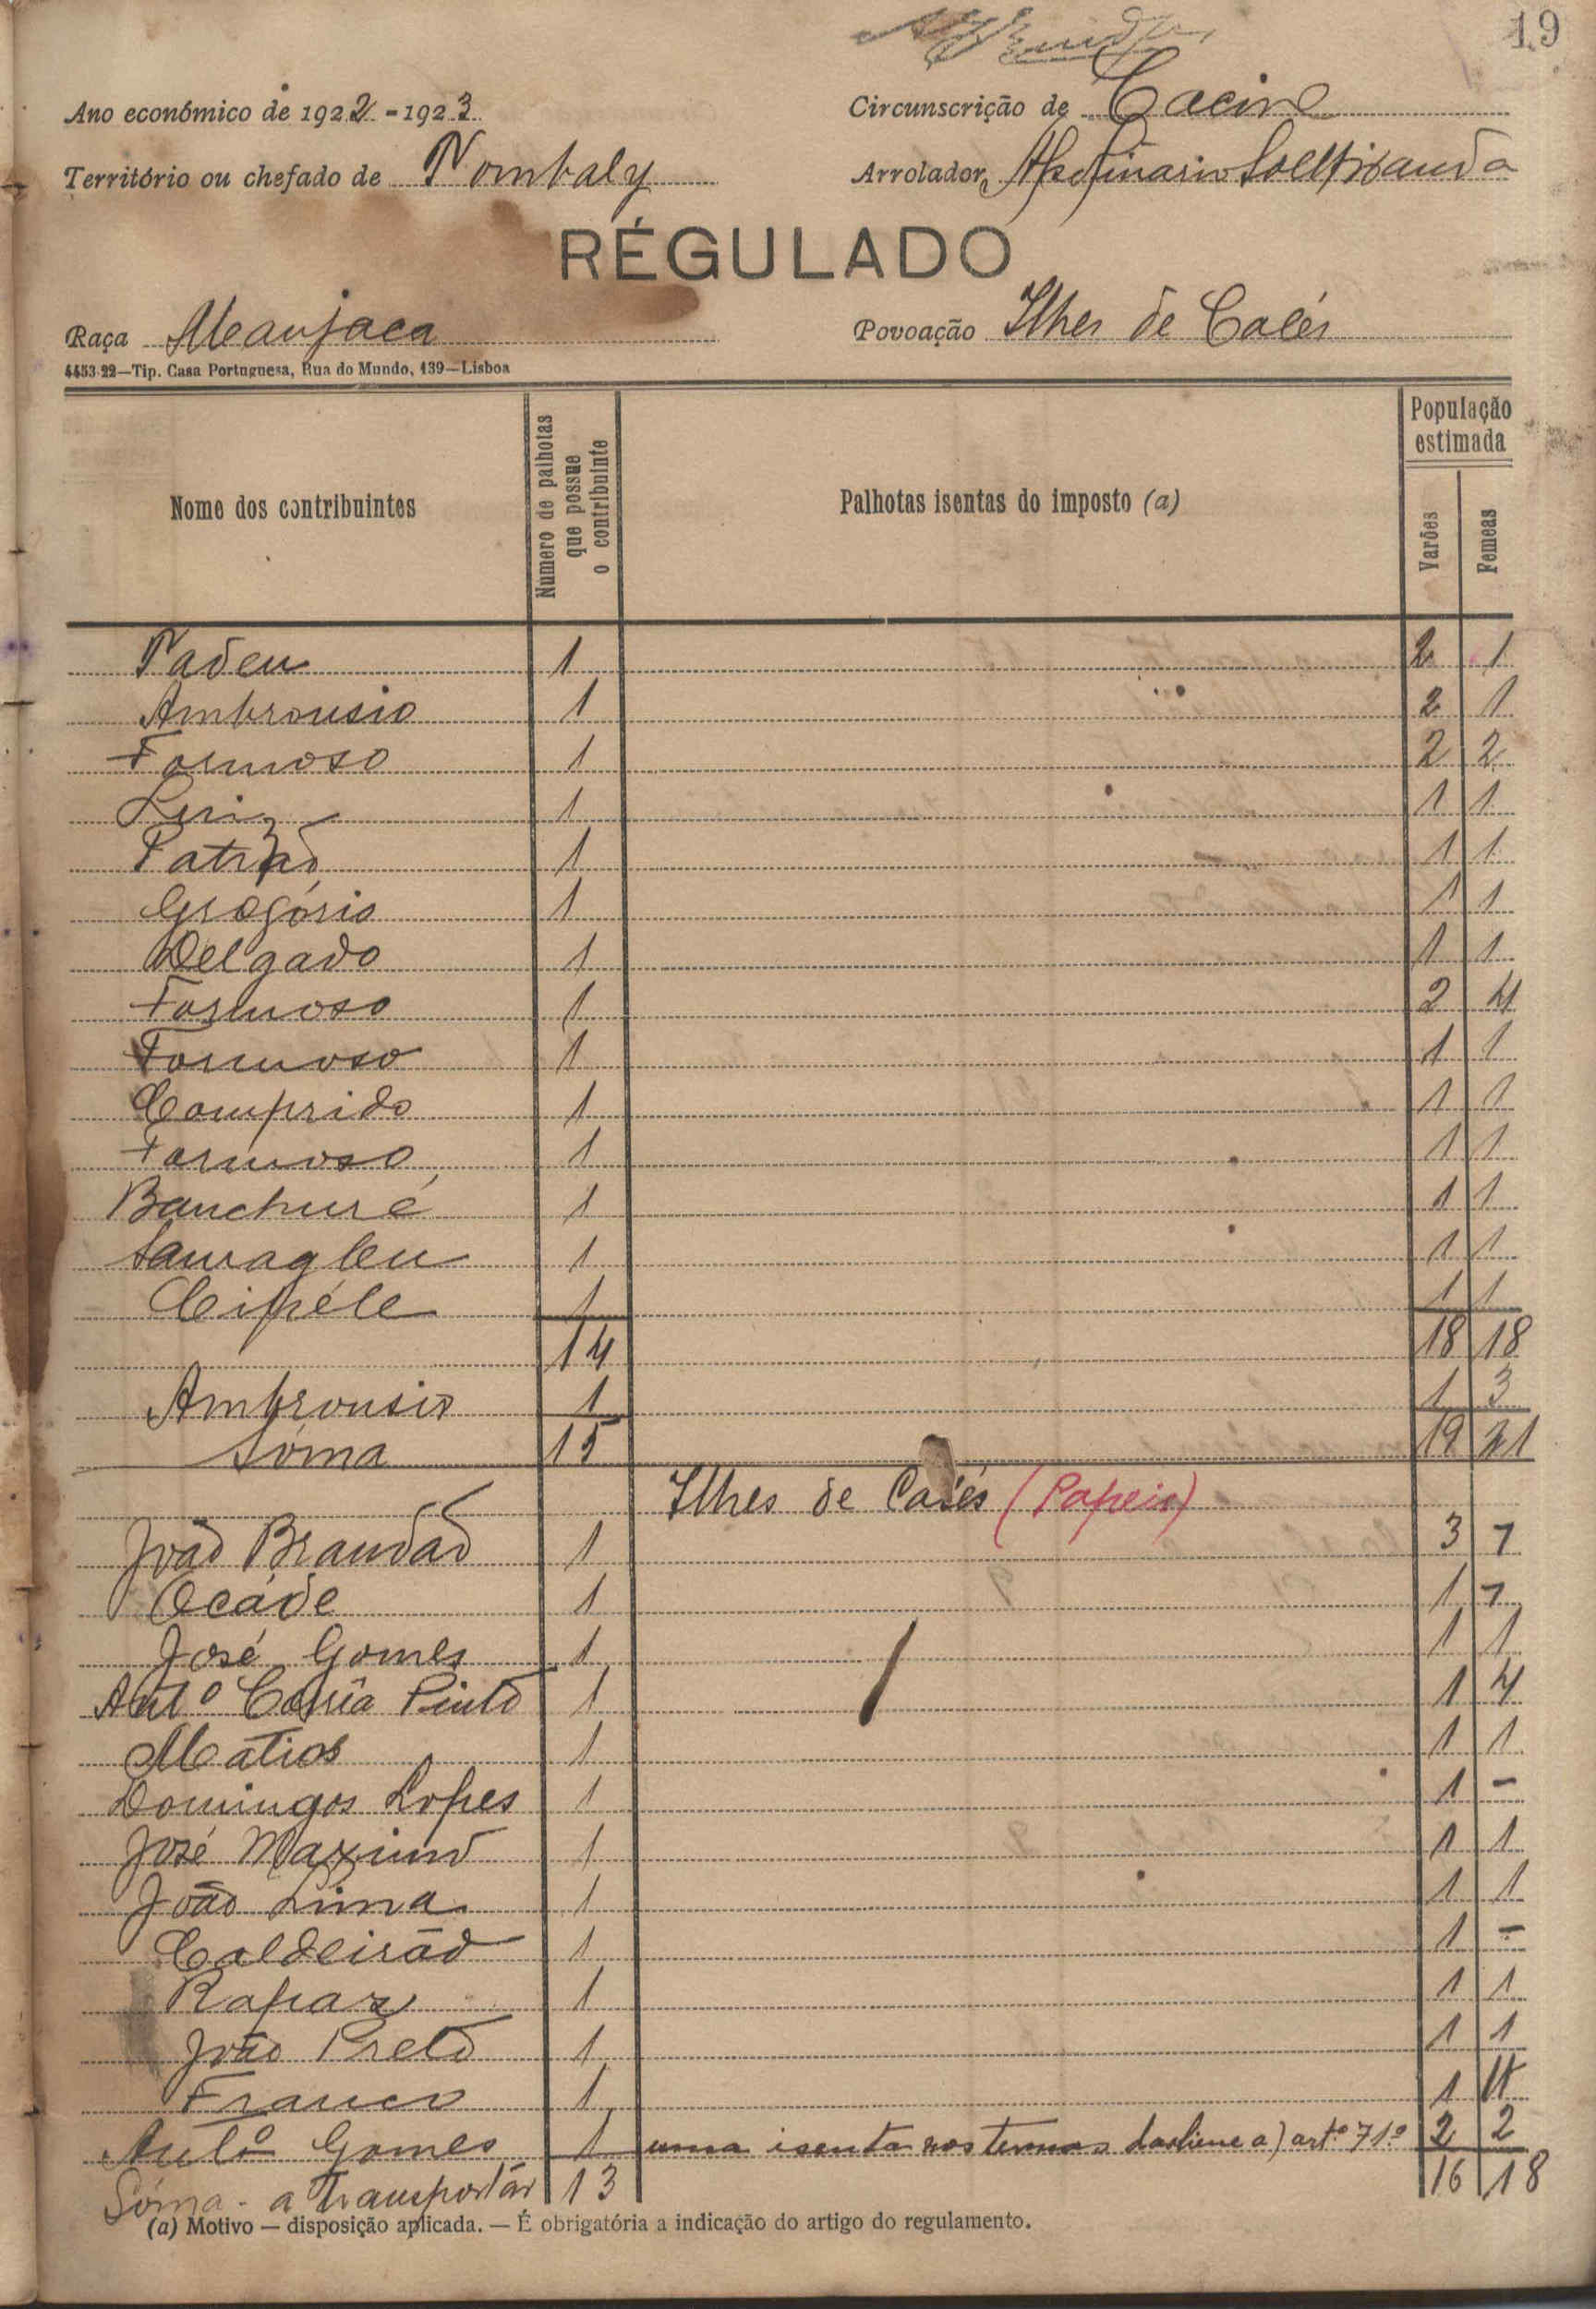 19
Ano económico de 1922-1923
Circunscrição de Cacine
Território ou chefado de Nombaly
Arrolador,
RÉGULADO
Raça Manjaca
Povoação Ilhes de Calés
4453-22—Tip. Casa Portuguesa, Rua do Mundo, 139—Lisboa
Nome dos contribuintes
Numero de palhotas que possue o contribuinte
Palhotas isentas do imposto (a)
População estimada
Varões
Femeas
Tadeu 1 2 1
Ambrousio 1 2 1
Formoso 1 2 2
Luiz 1 1 1
1 1 1
Gregório 1 1 1
Delgado 1 1 1
Formoso 1 2 4
Formoso 1 1 1
Comprido 1 1 1
Formoso 1 1 1
Banchuré 1 1 1
1 1 1
Cipéle 1 1 1
14 18 18
Ambrousio 1 1 3
Sôma 15 19 21
Ilhes de Calés (Papeis)
João Brandão 1 3 1
Ocáde 1 1 1
José Gomes 1 1 1
Antº Corrêa Pinto 1 1 4
Matios 1 1 1
Domingos Lopes 1 1 -
José Maximo 1 1 1
João Lima 1 1 1
Caldeirão 1 1 -
Rapaz 1 1 1
João Preto 1 1 1
Franco 1 1 4
Antº Gomes 1 uma isenta nos termos da aliena a) artº 71º 2 2
Sôma - a transportár 13 16 18
(a) Motivo — disposição aplicada. — É obrigatória a indicação do artigo do regulamento.